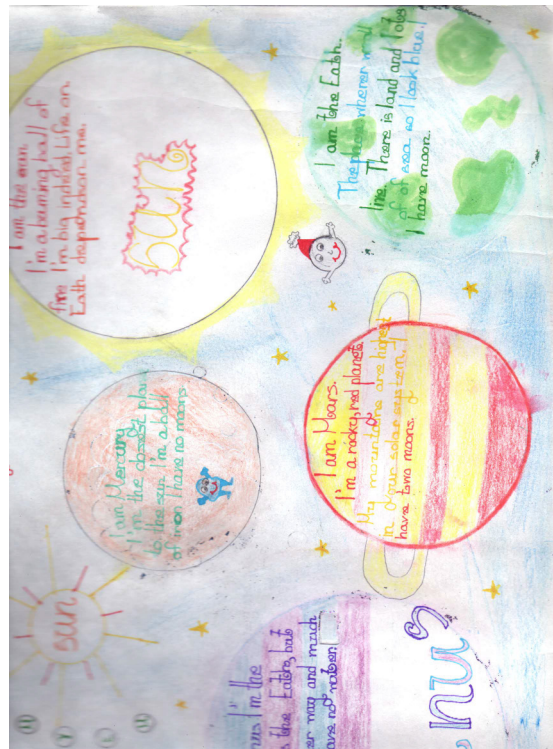 I am the sun
I'm a burning ball of
fire I'm big indeed. Life on
Eath depends on me.
Sun
I am the Eath.
The place where
live. There is land and lots
of of sea so I look blue. I
I have moon.
I am Mercury
I'm the closest
to the sun I'm a
of iron I have no moons.
I am Mears.
I'm a rocky, red planet.
My mountains are highest
in of our solar system. I
have two moons.
sun
I'm the
the Eath, but
may and much
no
nus